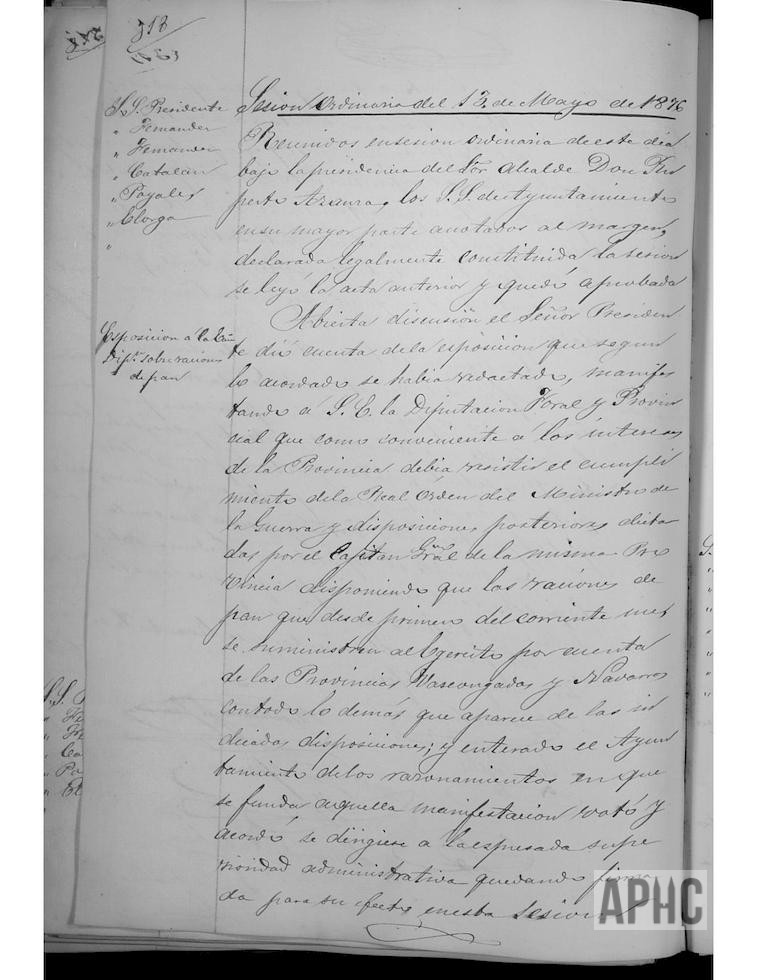 318
S.S. Presidente
" Fernandez
" Fernandez
" Catalan
" Payales
" Elorga
"
Sesion Ordinaria del 13 de Mayo de 1876
Reunidos en sesion ordinaria de este dia
bajo la presidencia del Sor Alcalde Don Ru
perto Azcona, los S.S. de Ayuntamiento
en su mayor parte anotados al margen,
declarada legalmente constituida la sesion
se leyó la acta anterior y quedó aprobada
Esposicion á la Exma
Dipon sobre raciones
de pan
Abierta discusiōn el Señor Presiden
te dió cuenta de la esposicion que segun
lo acordado se habia redactado, manifes
tando á S.E. la Diputacion Foral y Provin
cial que como conveniente á los intereses
de la Provincia debia resistir el cumpli
miento de la Real Orden del Ministro de
la Guerra y disposiciones posteriores dicta
das por el Capitan Gral de la misma Pro
vincia disponiendo que las raciones de
pan que desde primero del corriente mes
se suministren al Egercito por cuenta
de las Provincias Vascongadas y Navarra
con todo lo demás que aparece de las in
dicadas disposiciones; y enterado el Ayun
tamiento de los razonamientos en que
se funda aquella manifestacion votó y
acordó se dirigiese a la espresada supe
rioridad administrativa quedando firma
da para su efecto en esta sesion
S.S. P
" Fe
" Fe
" Ca
" Pa
" El
APHC